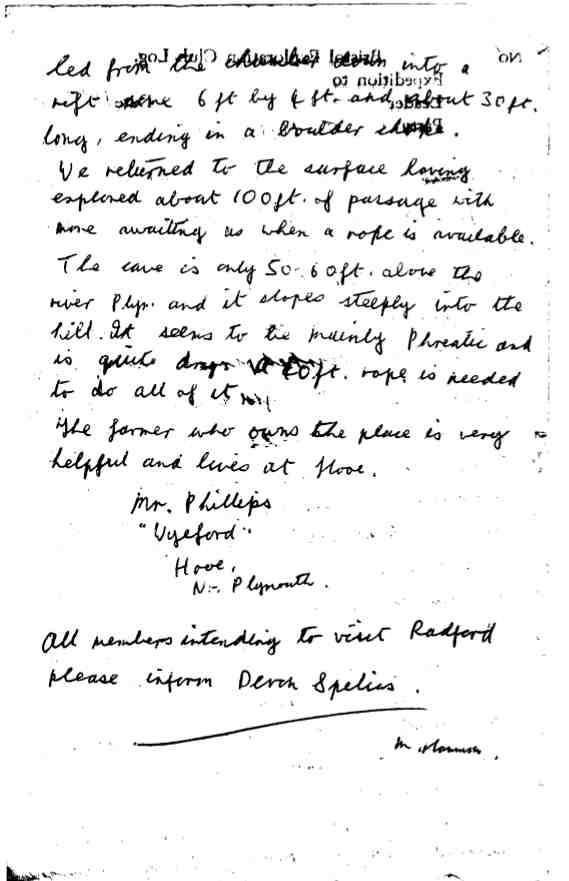 led from the chamber down into a
rift some 6 ft by 4 ft. and about 30 ft.
long, ending in a boulder
We returned to the surface having
explored about 100 ft. of passage with
more awaiting us when a rope is available.
The cave is only 50-60 ft. above the
river Plym. and it slopes steeply into the
hill. It seems to be mainly Phreatic and
is quite ft. rope is needed
to do all of it
The farmer who owns the place is very
helpful and lives at Hooe.
Mr. Phillips
Hooe,
Nr. Plymouth.
All members intending to visit Radford
please inform Devon Spelios.
M.
No
Bristol Exploration Club Log
Expedition to
Leader